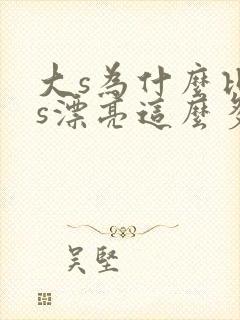 大s為什麼比
s漂亮這麼多
吳堅